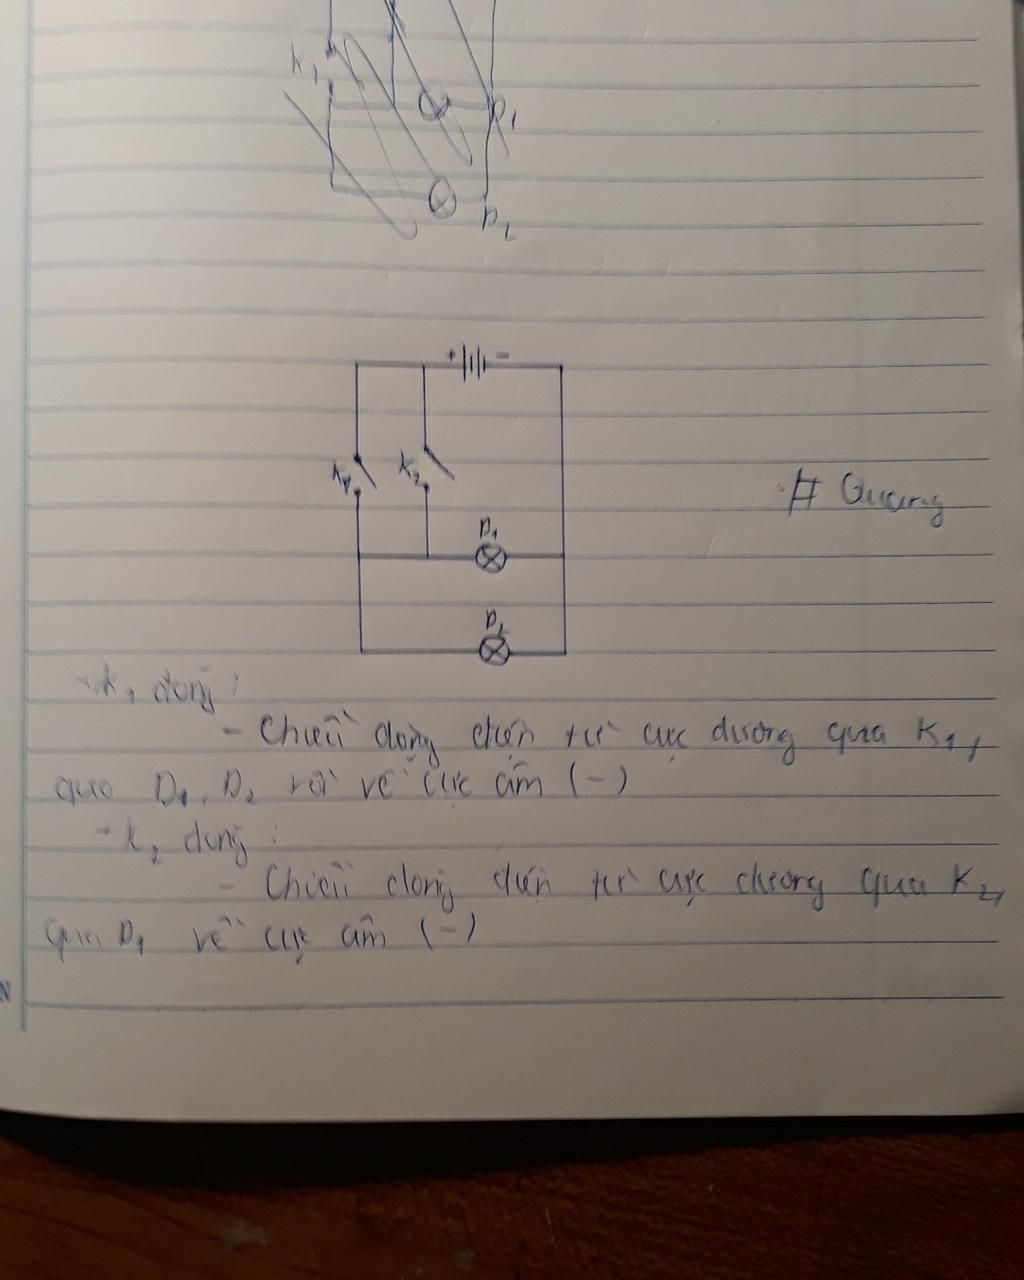 K1
D1
D2
+ -
K1 K2
# Quang
D1
D2
+ K1 đóng :
- Chiều dòng điện từ cực dương qua K1,
qua D1, D2 rồi về cực âm (-)
+ K2 đóng :
- Chiều dòng điện từ cực dương qua K2,
qua D1 về cực âm (-)
N